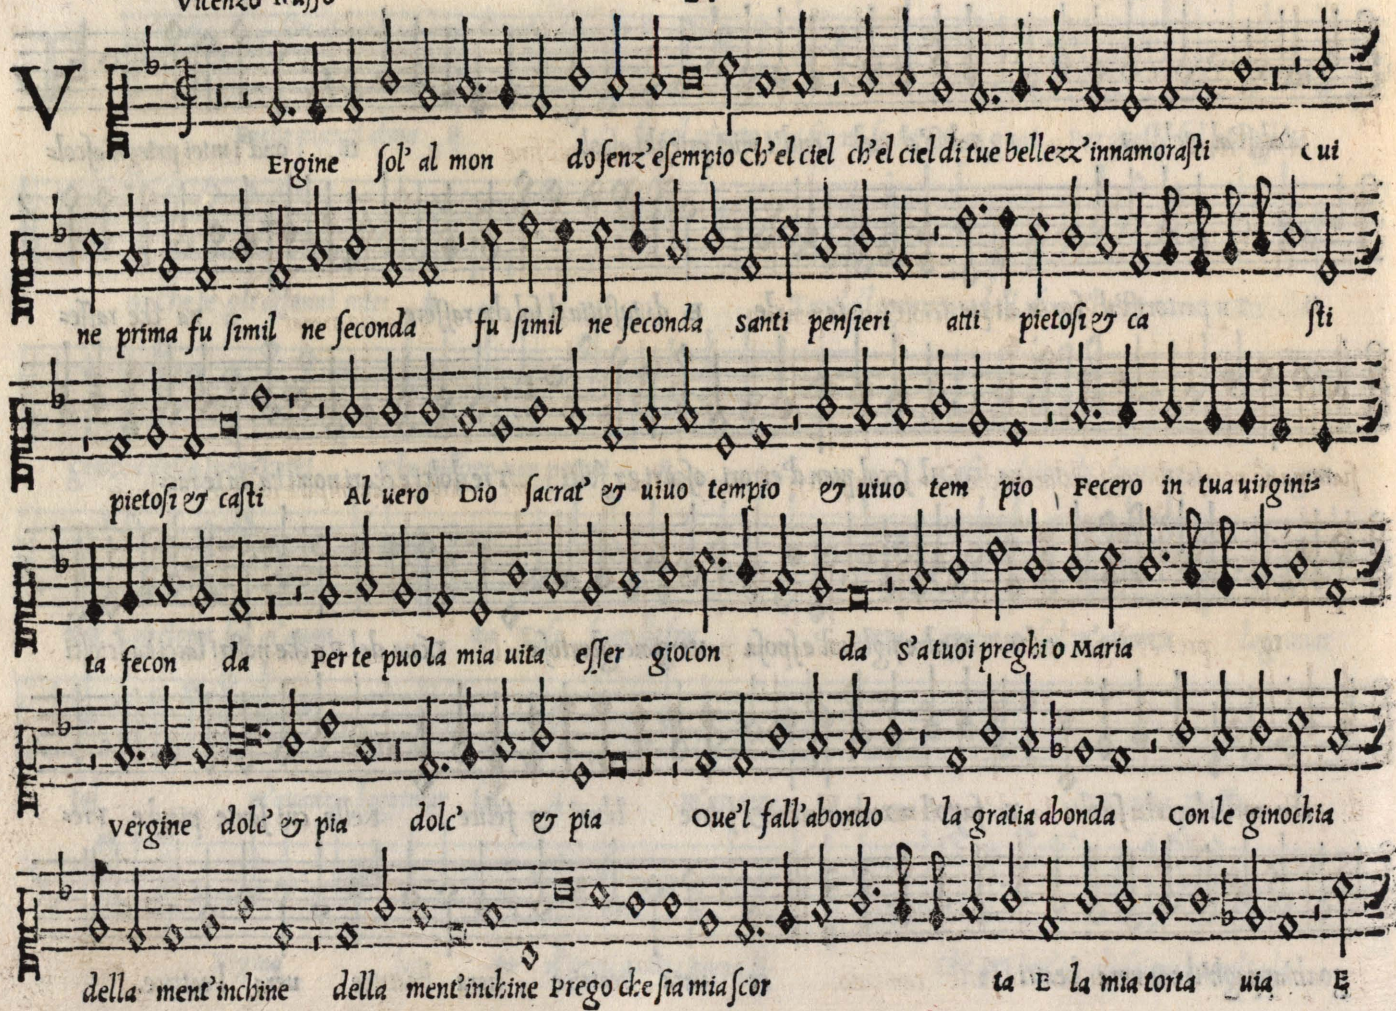 Vicenzo Ruffo
V
Ergine sol' al mon do senz' esempio Ch'el ciel ch'el ciel di tue bellezz' innamorasti Cui
ne prima fu simil ne seconda fu simil ne seconda Santi pensieri atti pietosi & ca sti
pietosi & casti Al uero Dio sacrat' & uiuo tempio & uiuo tem pio Fecero in tua uirgini-
ta fecon da Per te puo la mia uita esser giocon da S'a tuoi preghi o Maria
Vergine dolc' & pia dolc' & pia Oue'l fall' abondo la gratia abonda Con le ginochia
della ment' inchine della ment' inchine Prego che sia mia scor ta E la mia torta uia E